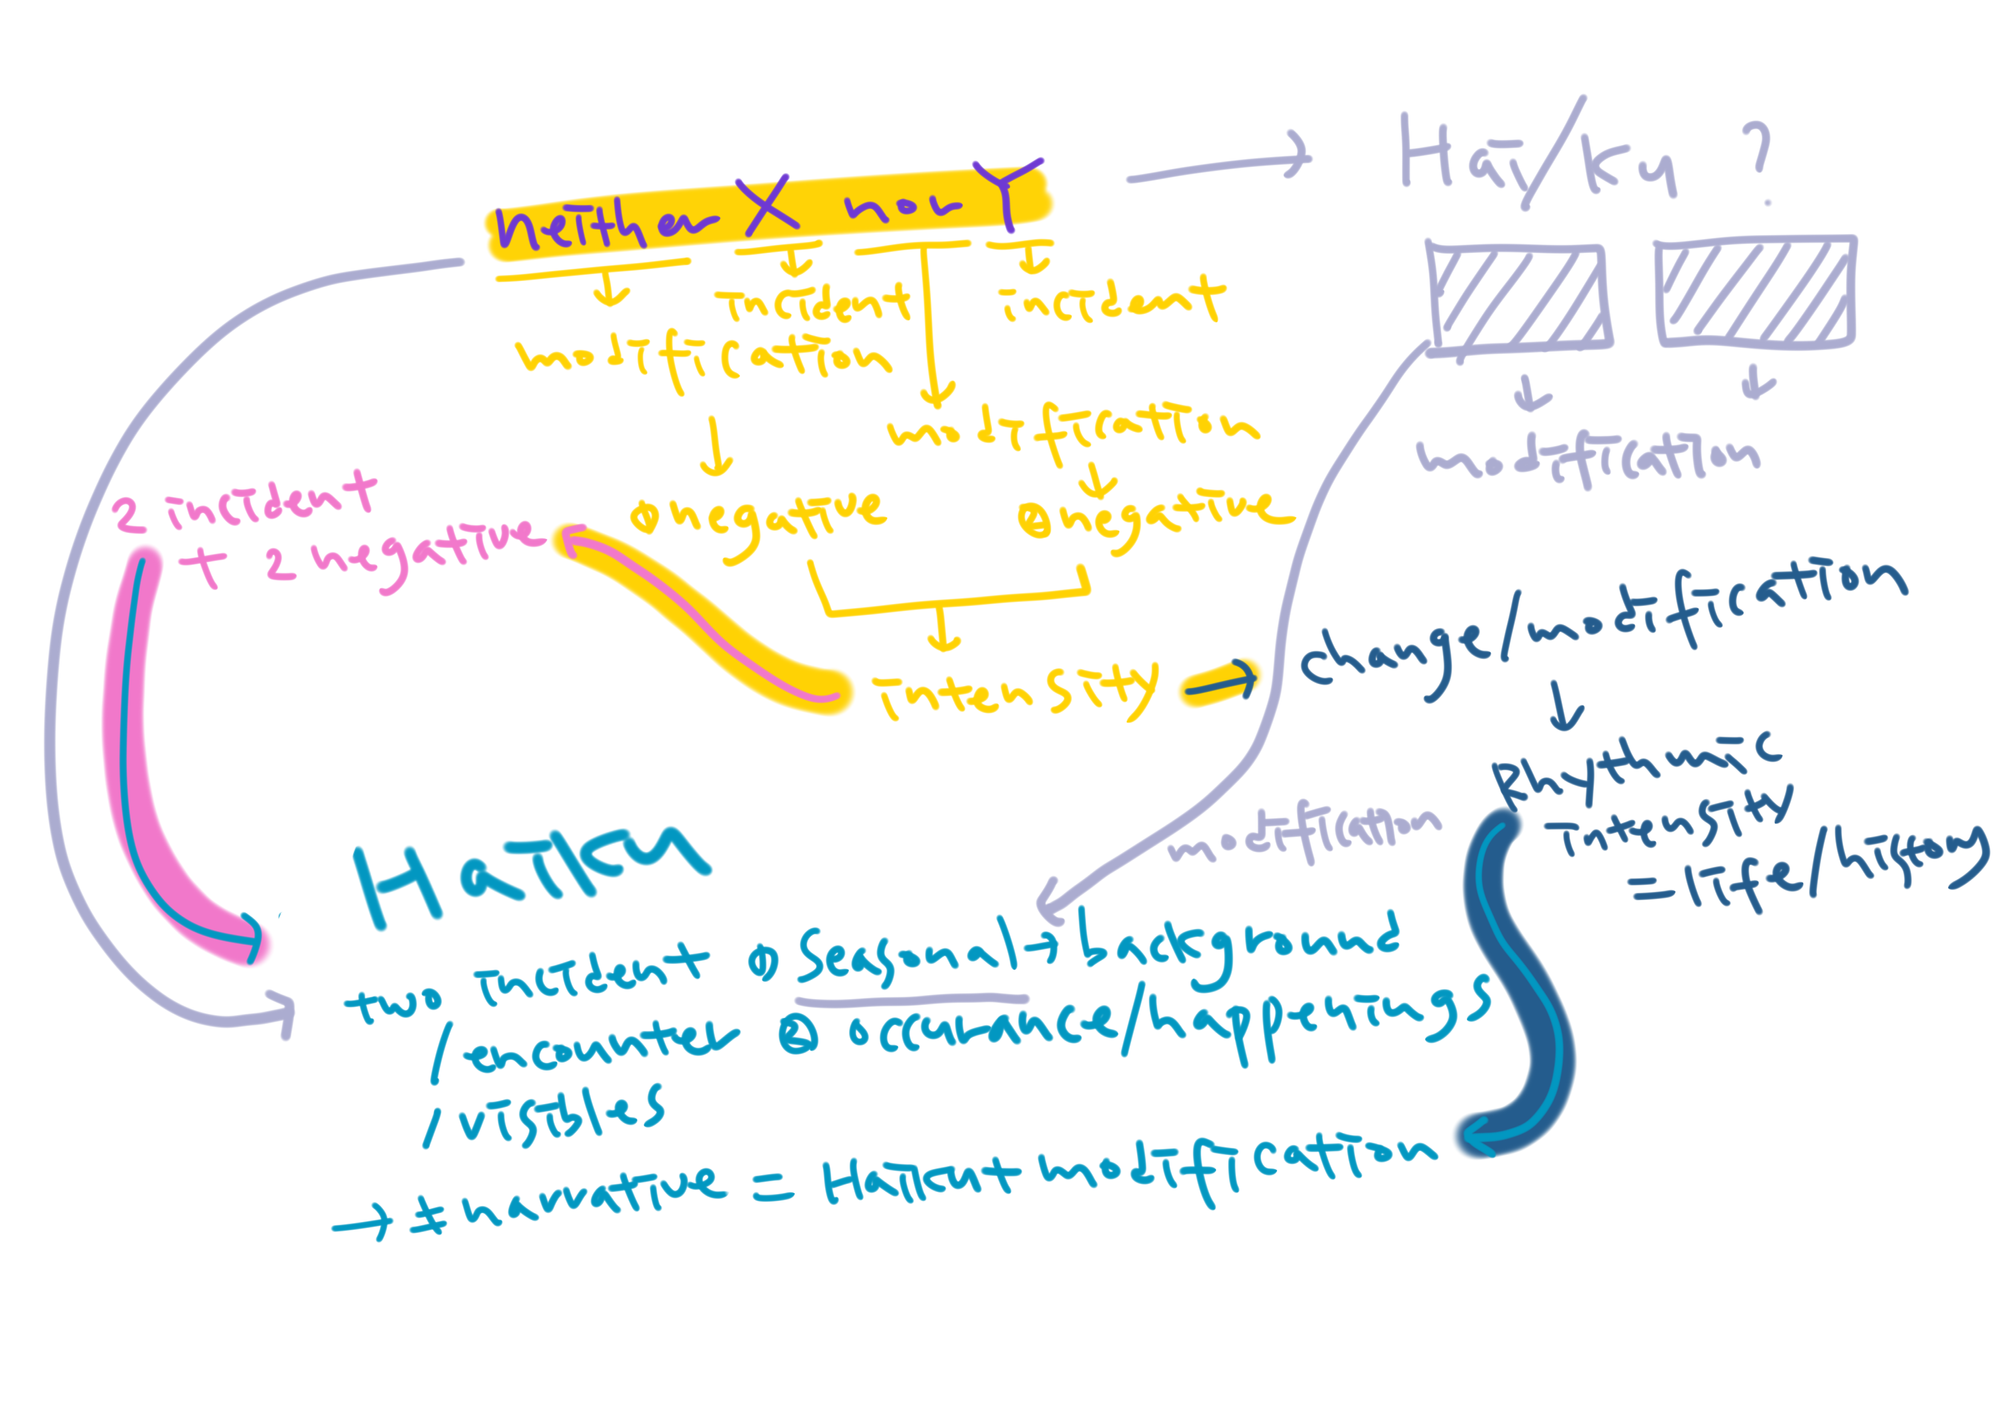 neither X nor Y
Hai/Ku ?
incident
incident
modification
modification
modification
① negative
② negative
2 incident
+ 2 negative
intensity
change/modification
Rhythmic
intensity
= life/history
modification
Haiku
two incident ① Seasonal → background
/encounter ② occurance/happenings
/visibles
→ ≠ narrative = Haiku+modification